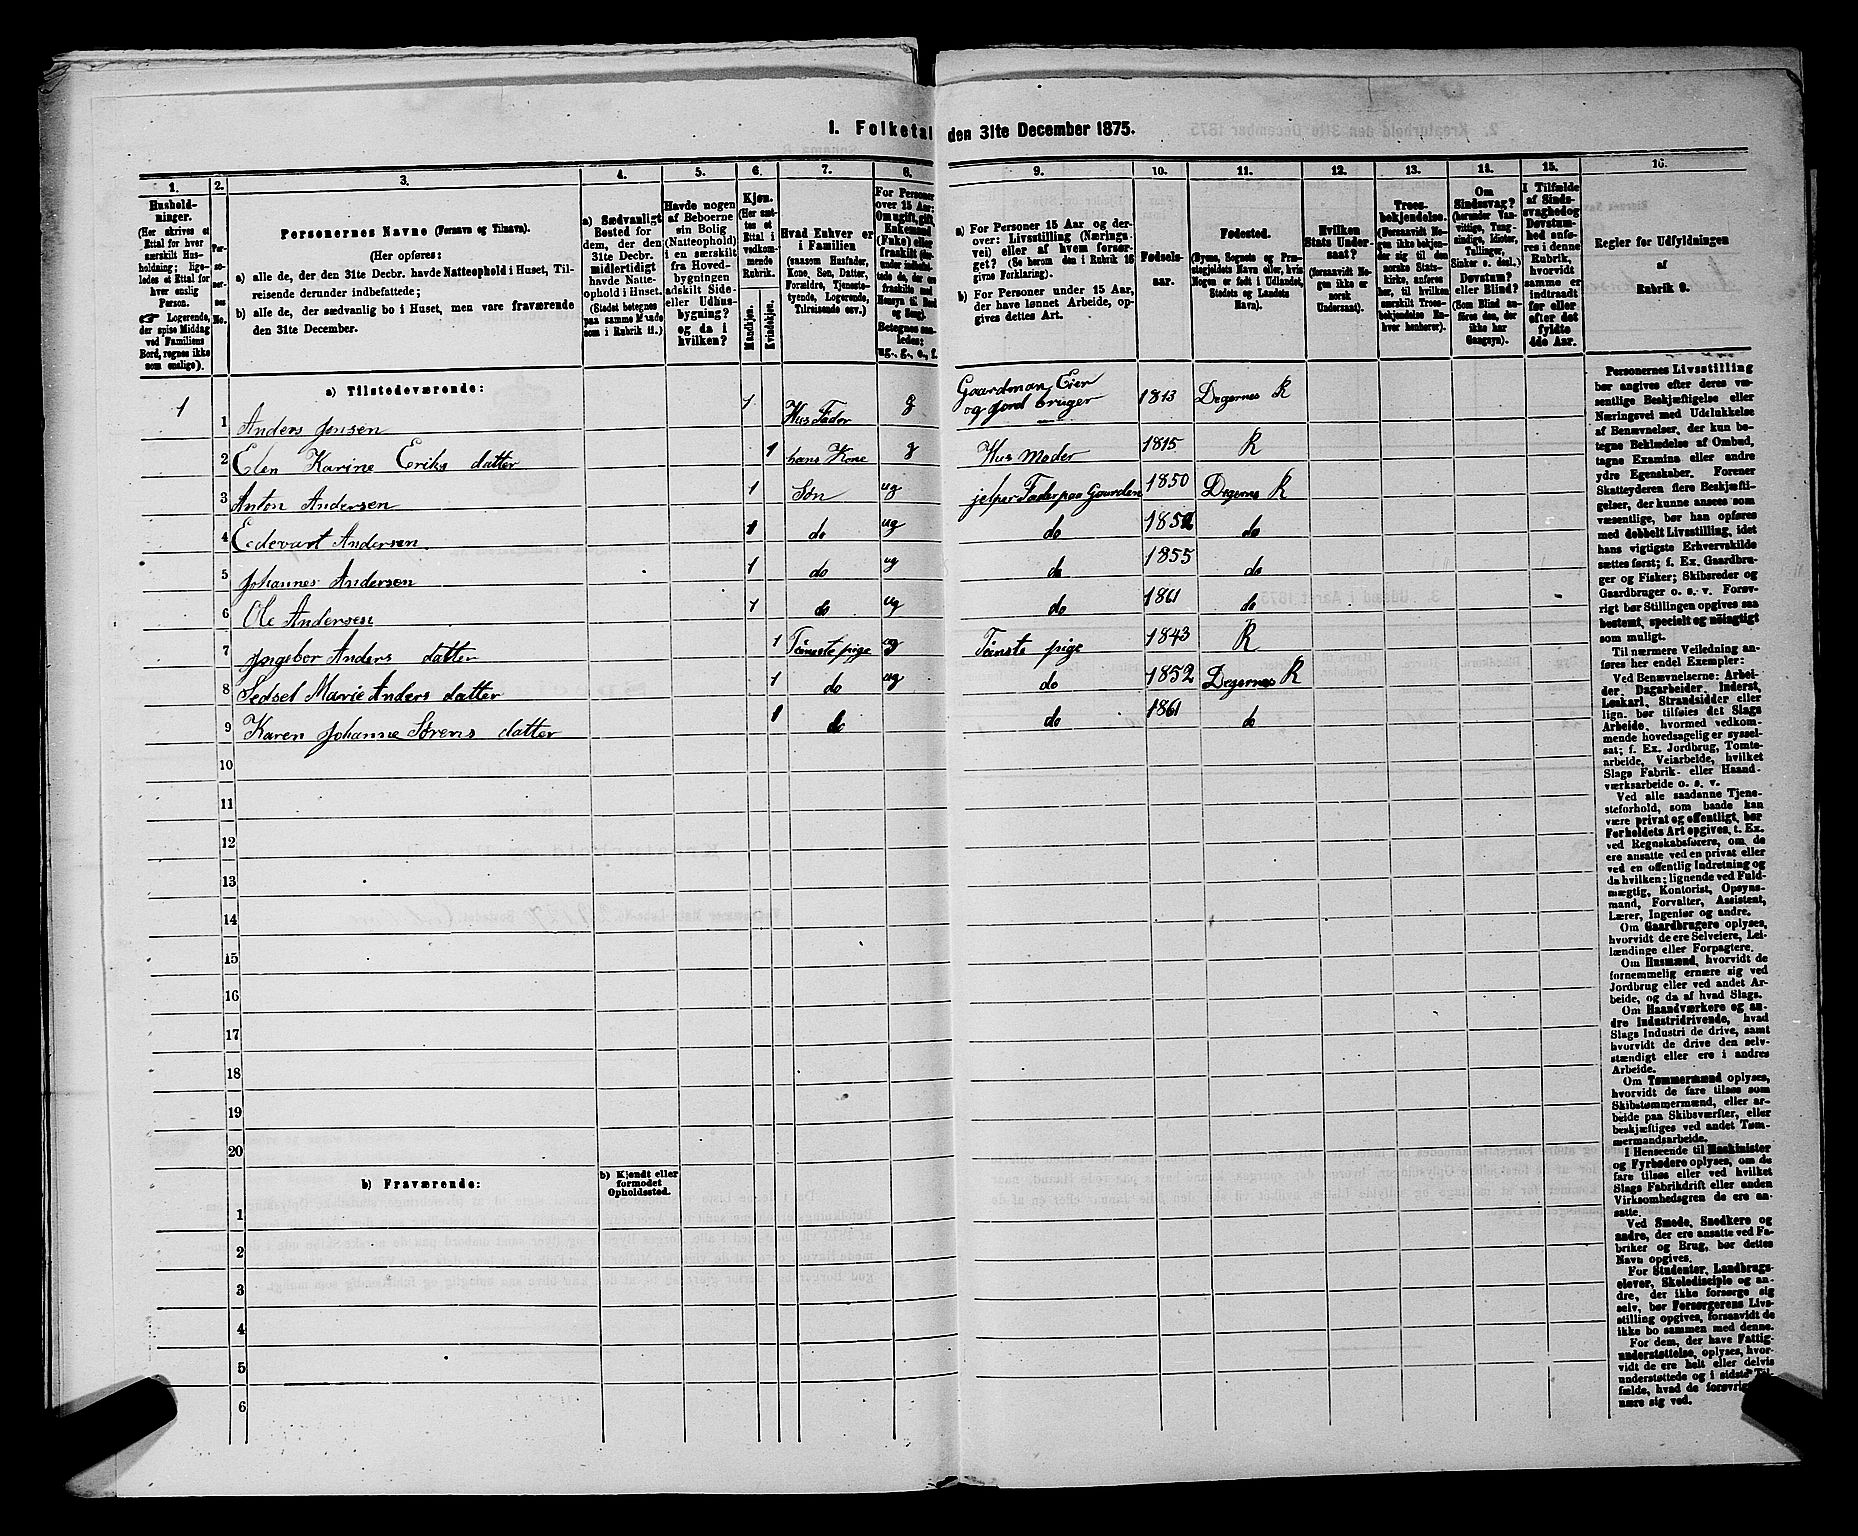 1. Folketal den 31te December 1875.
1.
Hushold-
ninger.
(Her skrives et
Ettal for hver
særskilt Hus-
holdning; lige-
ledes et Ettal for
hver enslig
Person.
☞ Logerende,
der spise Middag
ved Familiens
Bord, regnes ikke
som enslige).
2.
Per-
so-
ner-
nes
No.
3.
Personernes Navne (Fornavn og Tilnavn).
(Her opføres:
a) alle de, der den 31te Decbr. havde Natteophold i Huset, Til-
reisende derunder indbefattede;
b) alle de, der sædvanlig bo i Huset, men vare fraværende
den 31te December.
4.
a) Sædvanligt
Bosted for
dem, der den
31te Decbr.
midlertidigt
havde Natte-
ophold i Huset.
(Stedet betegnes
paa samme Maade
som i Rubrik 11.)
5.
Havde nogen
af Beboerne
sin Bolig
(Natteophold)
i en særskilt
fra Hoved-
bygningen
adskilt Side-
eller Udhus-
bygning?
og da i
hvilken?
6.
Kjøn.
(Her sæt-
tes et
Ettal i
vedkom-
mende
Rubrik.
Mandkjøn.
Kvindekjøn.
7.
Hvad Enhver er
i Familien
(saasom Husfader,
Kone, Søn, Datter,
Forældre, Tjeneste-
tyende, Logerende,
Tilreisende osv.)
8.
For Personer
over 15 Aar:
Om ugift, gift,
Enkemand
(Enke) eller
fraskilt
Betegnes saa-
ledes:
ug., g., e., f.
9.
a) For Personer 15 Aar og der-
over: Livsstilling (Nærings-
vei) eller af hvem forsør-
get? (Se herom den i Rubrik 16
givne Forklaring).
b) For Personer under 15 Aar,
der have lønnet Arbeide, op-
gives dettes Art.
10.
Fødsels-
aar.
11.
Fødested.
(Byens, Sognets og Præ-
stegjeldets Navn eller, hvis
Nogen er født i Udlandet,
Stedets og Landets
Navn).
12.
Hvilken
Stats Under-
saat?
(forsaavidt No-
gen ikke er
norsk
Undersaat).
13.
Troes-
bekjendelse.
(Forsaavidt No-
gen ikke bekjen-
der sig til den
norske Stats-
kirke, anføres
her, til hvilken
særskilt Troes-
bekjendelse En-
hver henhører).
14.
Om
Sindssvag?
(herunder Van-
vittige, Tung-
sindige, Idioter,
Tullinger,
Sinker o. desl.)
Døvstum?
eller Blind?
(Som Blind an-
føres den, der
ikke har
Gangsyn).
15.
I Tilfælde
af Sinds-
svaghed og
Døvstum-
hed anfø-
res i denne
Rubrik,
hvorvidt
samme er
indtraadt
før eller
efter det
fyldte
4de Aar.
16.
Regler for Udfyldningen
af
Rubrik 9.
a) Tilstedeværende:
1 1 Anders Jensen 1 Hus Fader g Gaardman Eier og jord bruger 1813 Degernes R
2 Elen Karine Eriks datter 1 hans Kone g Hus Moder 1815 R
3 Anton Andersen 1 Søn ug jelper Fader paa Gaarden 1850 Degernes R
4 Edevart Andersen 1 do ug do 1852 do
5 Johannes Andersen 1 do ug do 1855 do
6 Ole Andersen 1 do ug do 1861 do
7 Jngebor Anders datter 1 Tienste pige ug Tienste pige 1843 R
8 Sedsel Marie Anders datter 1 do ug do 1852 Degernes R
9 Karen Johanne Sørens datter 1 do do 1861 do
10
11
12
13
14
15
16
17
18
19
20
b) Fraværende:
b) Kjendt eller
formodet
Opholdssted.
1
2
3
4
5
6
Personernes Livsstilling
bør angives efter deres væ-
sentlige Beskjæftigelse eller
Næringsvei med Udelukkelse
af Benævnelser, der kun be-
tegne Beklædelse af Ombud,
tagne Examina eller andre
ydre Egenskaber. Forener
Skatteyderen flere Beskjæfti-
gelser, der kunne ansees som
væsentlige, bør han opføres
med dobbelt Livsstilling, idet
hans vigtigste Erhvervskilde
sættes først; f. Ex. Gaardbru-
ger og Fisker; Skibsreder og
Gaardbruger o. s. v. Forøv-
rigt bør Stillingen opgives saa
bestemt, specielt og nöiagtigt
som muligt.
Til nærmere Veiledning an-
føres her endel Exempler:
Ved Benævnelserne: Arbei-
der, Dagarbeider, Inderst,
Løskarl, Strandsidder eller
lign. bør tilføies det Slags
Arbeide, hvormed vedkom-
mende hovedsagelig er syssel-
sat; f. Ex. Jordbrug, Tomte-
arbeide, Veiarbeide, hvilket
Slags Fabrik- eller Haand-
værksarbeide o. s. v.
Ved alle saadanne Tjene-
steforhold, som baade kan
være privat og offentligt, bør
Forholdets Art opgives, t. Ex.
ved Regnskabsførere, om de
ere ansatte ved en privat eller
ved en offentlig Indretning og
da hvilken; lignende ved Fuld-
mægtig, Kontorist, Opsyns-
mand, Forvalter, Assistent,
Lærer, Ingeniør og andre.
Om Gaardbrugere oplyses,
hvorvidt de ere Selveiere, Lei-
lændinge eller Forpagtere.
Om Husmænd, hvorvidt de
fornemmelig ernære sig ved
Jordbrug eller ved andet Ar-
beide, og da af hvad Slags.
Om Haandværkere og an-
dre Industridrivende, hvad
Slags Industri de drive, samt
hvorvidt de drive den selv-
stændigt eller ere i andres
Arbeide.
Om Tømmermænd oplyses,
hvorvidt de fare tilsøs som
Skibstømmermænd, eller ar-
beide paa Skibsværfter, eller
beskjæftiges ved andet Tøm-
mermandsarbeide.
I Henseende til Maskinister
og Fyrbødere oplyses, om de
fare tilsøs eller ved hvilket
Slags Fabrikdrift eller anden
Virksomhedsgren de ere an-
satte.
Ved Smede, Snedkere og
andre, der ere ansatte ved Fa-
briker og Brug, bør dettes
Navn opgives.
For Studenter, Landbrugs-
elever, Skoledisciple og an-
dre, der ikke forsørge sig
selv, bør Forsørgerens Livs-
stilling opgives, forsaavidt de
ikke bo sammen med denne.
For dem, der have Fattig-
understøttelse, oplyses, hvor-
vidt de ere helt eller delvis
understøttede og i sidste Til-
fælde, hvad de forøvrigt
nære sig ved.